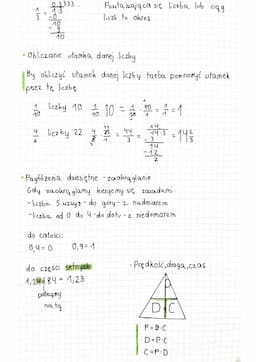 0,333...
1/3 = 1:3    Powtarzająca się liczba lub ciąg
-0    liczb to okres
10
-9
10
- Obliczanie ułamka danej liczby
By obliczyć ułamek danej liczby trzeba pomnożyć ułamek
przez tę liczbę
1/10 liczby 10    1/10 · 10 = 1/10 · 10/1 = 1/1 = 1
liczby 22    = 44/3 = = 14 2/3
14
44:3
-12
2
- Przybliżenia dziesiętne - zaokrąglanie
Gdy zaokrąglamy kierujemy się zasadami:
- liczba 5 wzwyż - do góry - z nadmiarem
- liczba od 0 do 4 - do dołu - z niedomiarem
do całości:
0,4=0    0,9=1
do części setnych    - Prędkość, droga, czas
= 1,23
patrzymy
na tą
P
D C
P=D:C
D=P·C
C=P:D